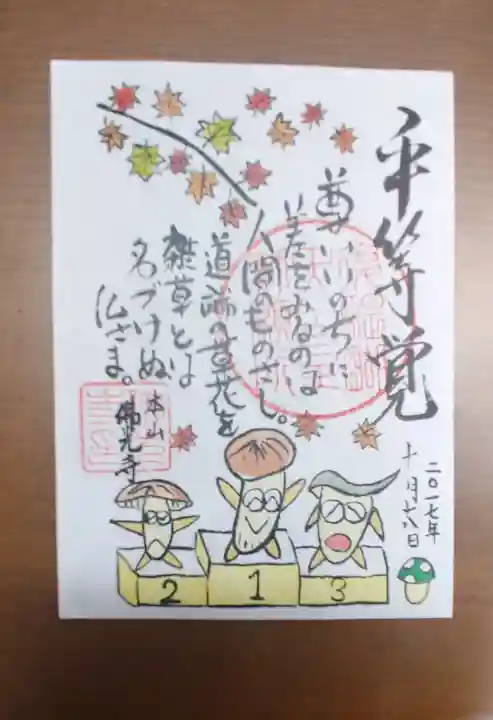 平等覚
尊いいのちに
差をみるのは
人間のものさし。
道端の草花を
雑草とは
名づけぬ
仏さま。
本山
佛光寺
二〇一七年
十月十六日
2
1
3